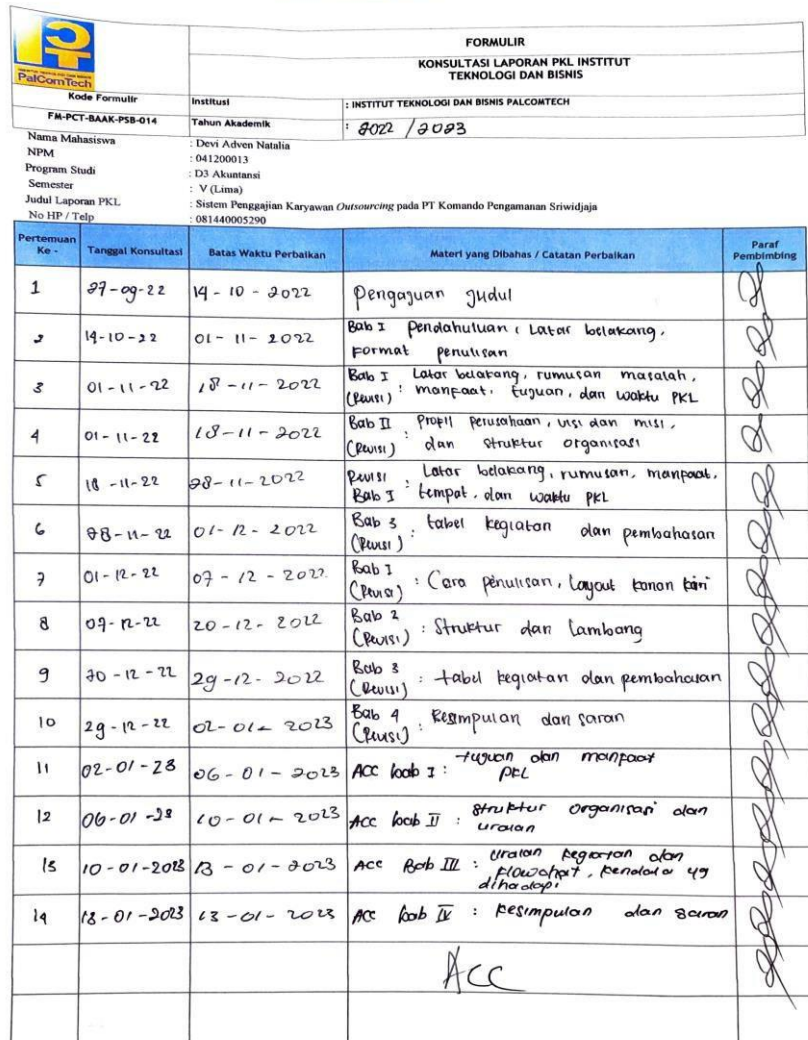 PalComTech
FORMULIR
KONSULTASI LAPORAN PKL INSTITUT
TEKNOLOGI DAN BISNIS
Kode Formulir
FM-PCT-BAAK-PSB-014
Institusi : INSTITUT TEKNOLOGI DAN BISNIS PALCOMTECH
Tahun Akademik : 2022 / 2023
Nama Mahasiswa : Devi Adven Natalia
NPM : 041200013
Program Studi : D3 Akuntansi
Semester : V (Lima)
Judul Laporan PKL : Sistem Penggajian Karyawan Outsourcing pada PT Komando Pengamanan Sriwidjaja
No HP / Telp : 081440005290
Pertemuan Ke - Tanggal Konsultasi Batas Waktu Perbaikan Materi yang Dibahas / Catatan Perbaikan Paraf Pembimbing
1 27-09-22 14 - 10 - 2022 Pengajuan Judul
2 14-10-22 01 - 11 - 2022 Bab I Pendahuluan : Latar belakang,
Format penulisan
3 01-11-22 18 - 11 - 2022 Bab I Latar belakang, rumusan masalah,
(Revisi) : manfaat, tujuan, dan waktu PKL
4 01-11-22 18-11-2022 Bab II Profil perusahaan, visi dan misi,
(Revisi) : dan struktur organisasi
5 18-11-22 28-11-2022 Revisi Latar belakang, rumusan, manfaat,
Bab I : tempat, dan waktu PKL
6 28-11-22 01-12-2022 Bab 3 tabel kegiatan dan pembahasan
(Revisi) :
7 01-12-22 07 - 12 - 2022 Bab I
(Revisi) : Cara penulisan, Layout kanan kiri
8 07-12-22 20-12-2022 Bab 2
(Revisi) : Struktur dan Lambang
9 20-12-22 29-12-2022 Bab 3
(Revisi) : tabel kegiatan dan pembahasan
10 29-12-22 02-01-2023 Bab 4
(Revisi) : Kesimpulan dan saran
11 02-01-23 06-01-2023 ACC bab I : tujuan dan manfaat
PKL
12 06-01-23 10-01-2023 ACC bab II : Struktur organisasi dan
uraian
13 10-01-2023 13-01-2023 ACC Bab III : Uraian kegiatan dan
flowchart, kendala yg
dihadapi
14 13-01-2023 13-01-2023 ACC bab IV : kesimpulan dan saran
ACC